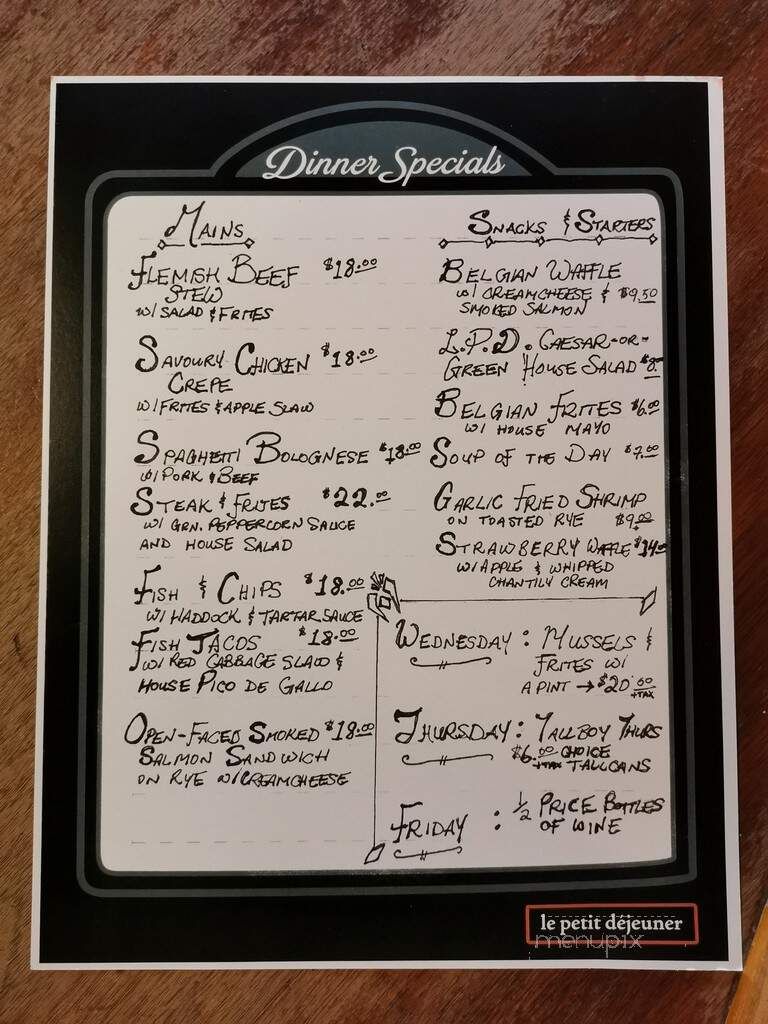 Dinner Specials
MAINS
FLEMISH BEEF $18.00
STEW
W/ SALAD & FRITES
SAVOURY CHICKEN $18.00
CREPE
W/ FRITES & APPLE SLAW
SPAGHETTI BOLOGNESE $18.00
W/ PORK & BEEF
STEAK & FRITES $22.00
W/ GRN. PEPPERCORN SAUCE
AND HOUSE SALAD
FISH & CHIPS $18.00
W/ HADDOCK & TARTAR SAUCE
FISH TACOS $18.00
W/ RED CABBAGE SLAW &
HOUSE PICO DE GALLO
OPEN-FACED SMOKED $18.00
SALMON SANDWICH
ON RYE W/ CREAMCHEESE
SNACKS & STARTERS
BELGIAN WAFFLE
W/ CREAMCHEESE & $9.50
SMOKED SALMON
L.P.D. CAESAR -OR-
GREEN HOUSE SALAD $8.-
BELGIAN FRITES $6.00
W/ HOUSE MAYO
SOUP OF THE DAY $7.00
GARLIC FRIED SHRIMP
ON TOASTED RYE $9.00
STRAWBERRY WAFFLE $14.00
W/ APPLE & WHIPPED
CHANTILY CREAM
WEDNESDAY : MUSSELS &
FRITES W/
A PINT → $20.00
+TAX
THURSDAY : TALLBOY THURS
$6.00 CHOICE
+TAX TALLCANS
FRIDAY : 1/2 PRICE BOTTLES
OF WINE
le petit déjeuner
menupix